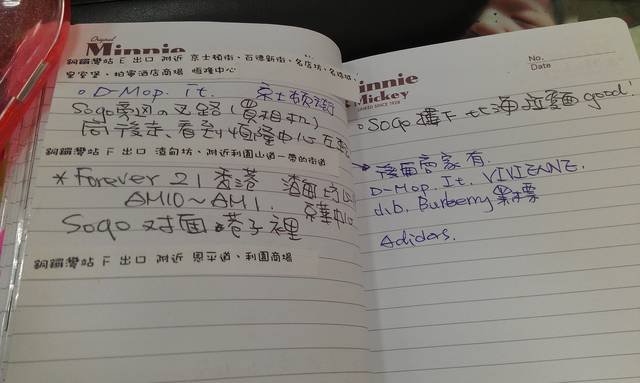 Original
Minnie
銅鑼灣站 E 出口 附近 京士頓街、百德新街、名店坊、名珠城、
皇室堡、柏寧酒店商場 恆隆中心
。D-Mop. it. 京士頓街
Sogo旁边の叉路(買相机)
向後走、看到恒隆中心左
銅鑼灣站 F 出口 渣甸坊、附近利園山道一帶的街道
*Forever 21 香港 渣甸坊
AM10~AM1. 京華中心
Sogo 对面巷子裡
銅鑼灣站 F 出口 附近 恩平道、利園商場
No.
Date
innie
Mickey
SINCE 1928
。Sogo 樓下 北海道拉麵 good!
→ 後面宮家有.
D-Mop. It. VIVIENNE.
d.b. Burberry 黑標
Adidas.